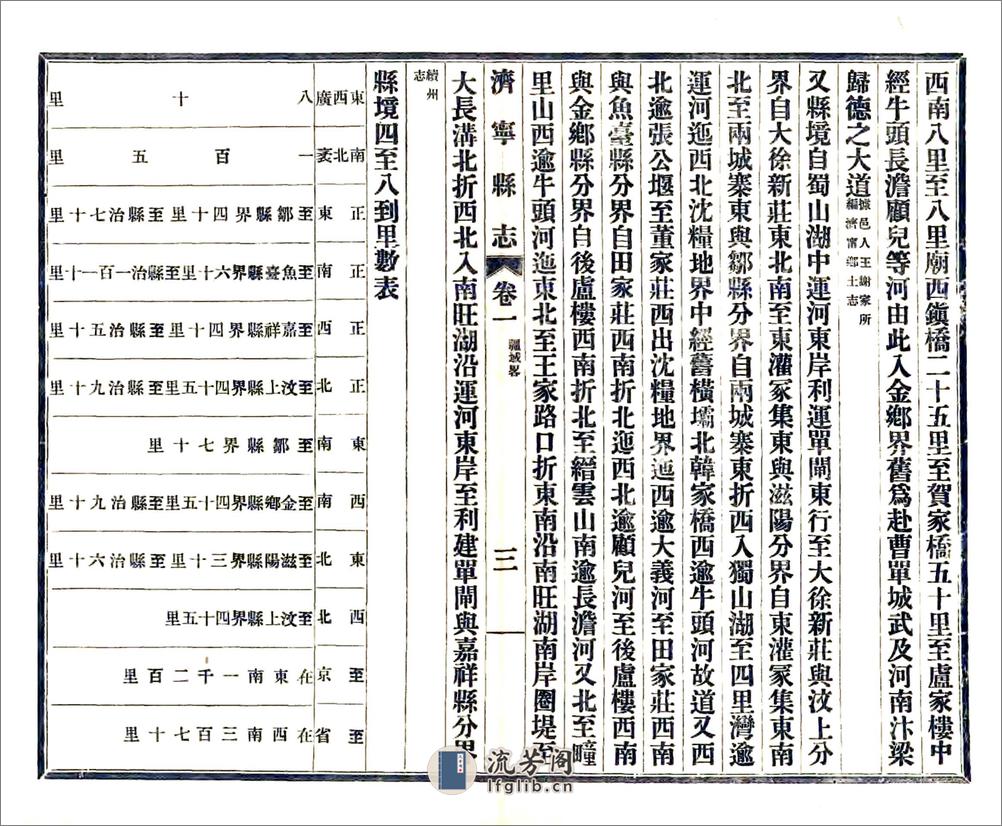 西南八里至八里廟西鎮橋二十五里至賀家橋五十里至盧家樓中
經牛頭長澹顧兒等河由此入金鄉界舊爲赴曹單城武及河南汴梁
歸德之大道據邑人王謝家所編濟甯鄉土志
又縣境自蜀山湖中運河東岸利運單閘東行至大徐新莊與汶上分
界自大徐新莊東北南至東灌冢集東與滋陽分界自東灌冢集東南
北至兩城寨東與鄒縣分界自兩城寨東折西入獨山湖至四里灣逾
運河迤西北沈糧地界中經舊橫壩北韓家橋西逾牛頭河故道又西
北逾張公堰至董家莊西出沈糧地界迤西逾大義河至田家莊西南
與魚臺縣分界自田家莊西南折北迤西北逾顧兒河至後盧樓西南
與金鄉縣分界自後盧樓西南折北至縉雲山南逾長澹河又北至疃
里山西逾牛頭河迤東北至王家路口折東南沿南旺湖南岸圈堤至
濟寧縣志 卷一 疆域畧 三
大長溝北折西北入南旺湖沿運河東岸至利建單閘與嘉祥縣分界
續州志
縣境四至八到里數表
東西廣 八十里
南北袤 一百五里
正東 至鄒縣界四十里 至縣治七十里
正南 至魚臺縣界六十里 至縣治一百一十里
正西 至嘉祥縣界四十里 至縣治五十里
正北 至汶上縣界四十五里 至縣治九十里
東南 至鄒縣界七十里
西南 至金鄉縣界四十五里 至縣治九十里
東北 至滋陽縣界三十里 至縣治六十里
西北 至汶上縣界四十五里
至京 在東南一千二百里
至省 在西南三百七十里
流芳阁
lfglib.cn